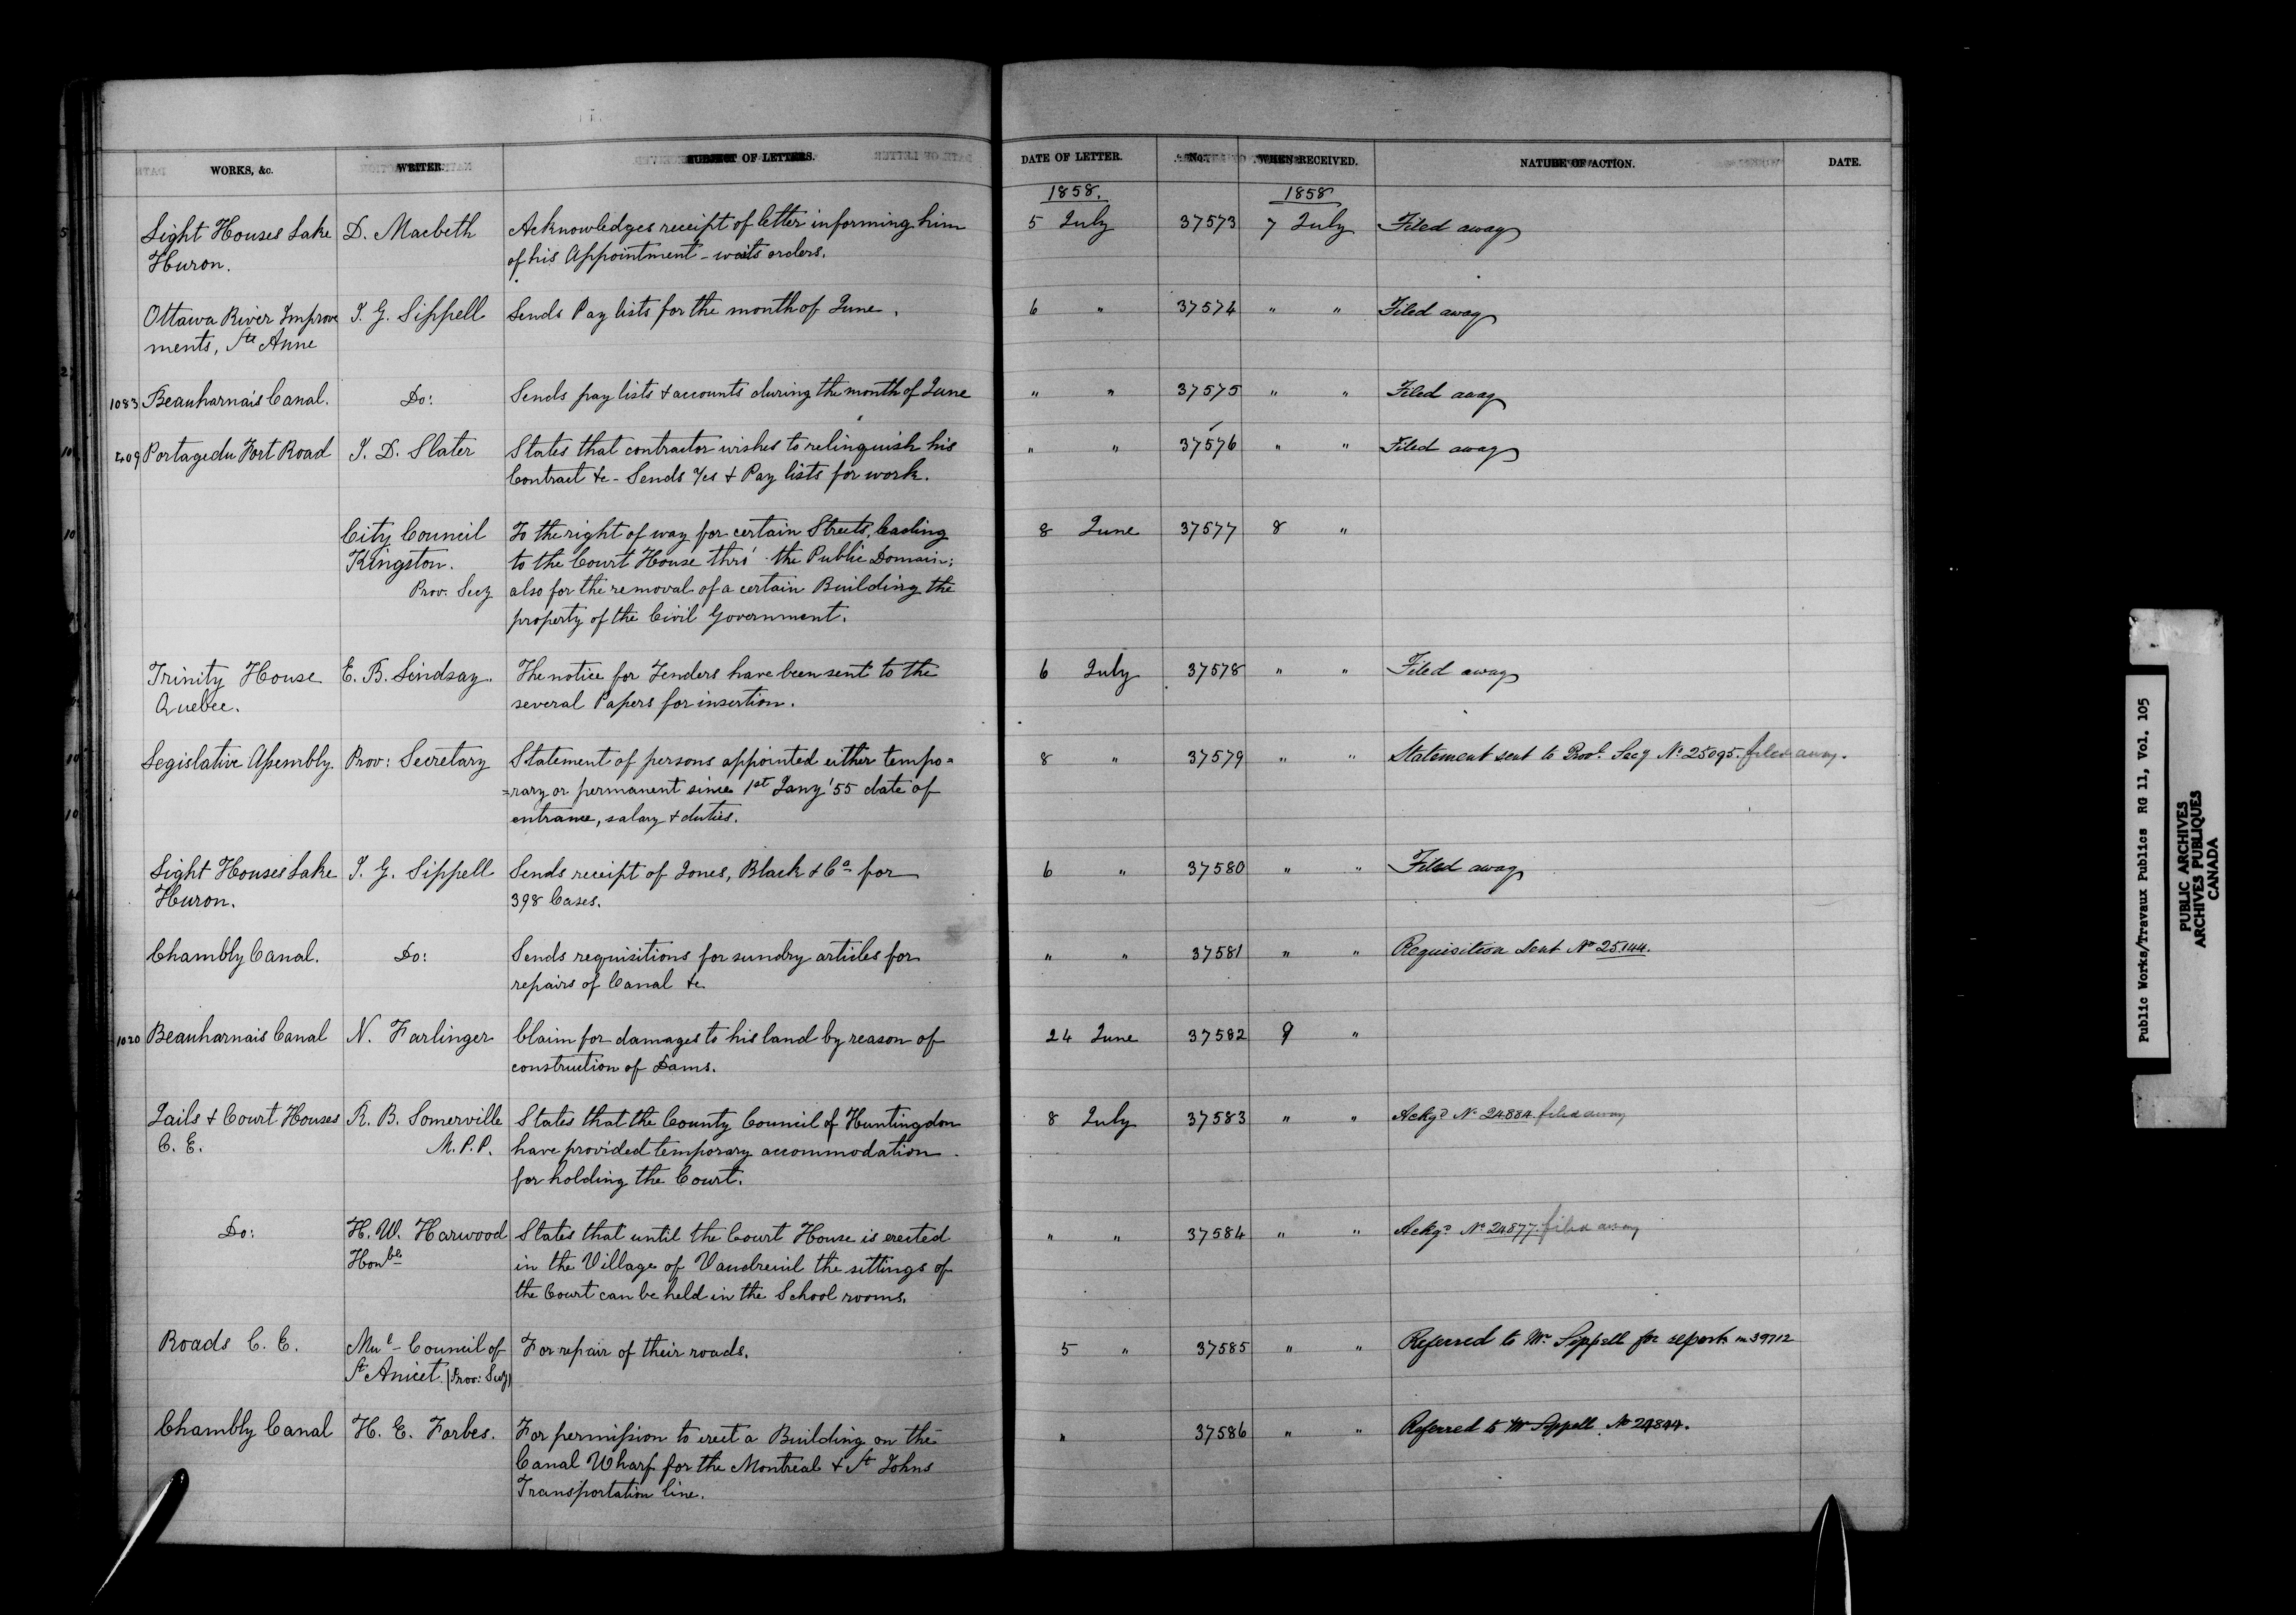 WORKS, &c. WRITER. SUBJECT OF LETTERS. DATE OF LETTER. No. WHEN RECEIVED. NATURE OF ACTION. DATE.
1858. 1858
Light Houses Lake D. Macbeth Acknowledges receipt of letter informing him 5 July 37573 7 July Filed away
Huron. of his Appointment - waits orders.
Ottawa River Improve J. G. Sippell Sends Pay lists for the month of June. 6 " 37574 " " Filed away
ments, Ste Anne
1083 Beauharnais Canal. Do: Sends pay lists & accounts during the month of June " " 37575 " " Filed away
409 Portage du Fort Road J. D. Slater States that contractor wishes to relinquish his " " 37576 " " Filed away
Contract &c - Sends & Pay lists for work.
City Council To the right of way for certain Streets, leading 8 June 37577 8 "
Kingston. to the Court House thro' the Public Domain;
Prov. Secy also for the removal of a certain Building the
property of the Civil Government.
Trinity House E. B. Lindsay. The notice for Tenders have been sent to the 6 July 37578 " " Filed away
Quebec. several Papers for insertion.
Legislative Assembly. Prov: Secretary Statement of persons appointed either tempo= 8 " 37579 " " Statement sent to Provl. Secy No 25095. filed away.
=rary or permanent since 1st Jany '55 date of
entrance, salary & duties.
Light Houses Lake J. G. Sippell Sends receipt of Jones, Black & Co for 6 " 37580 " " Filed away
Huron. 398 Cases.
Chambly Canal. Do: Sends requisitions for sundry articles for " " 37581 " " Requisition sent No 25144.
repairs of Canal &c
1020 Beauharnais Canal N. Farlinger Claim for damages to his land by reason of 24 June 37582 9 "
construction of Dams.
Jails & Court Houses R. B. Somerville States that the County Council of Huntingdon 8 July 37583 " " Ackgd No 24884 filed away
C. E. M.P.P. have provided temporary accommodation
for holding the Court.
Do: H. W. Harwood States that until the Court House is erected " " 37584 " " Ackgd No 24877. filed away
Honble in the Village of Vaudreuil the sittings of
the Court can be held in the School rooms.
Roads C. E. Mul - Council of For repair of their roads. 5 " 37585 " " Referred to Mr Sippell for report. 39712
St Anicet (Prov: Secy)
Chambly Canal H. E. Forbes. For permission to erect a Building on the " 37586 " " Referred to Mr Sippell. No 24844.
Canal Wharf for the Montreal & St Johns
Transportation line.
Public Works/Travaux Publics RG 11, Vol. 105
PUBLIC ARCHIVES
ARCHIVES PUBLIQUES
CANADA